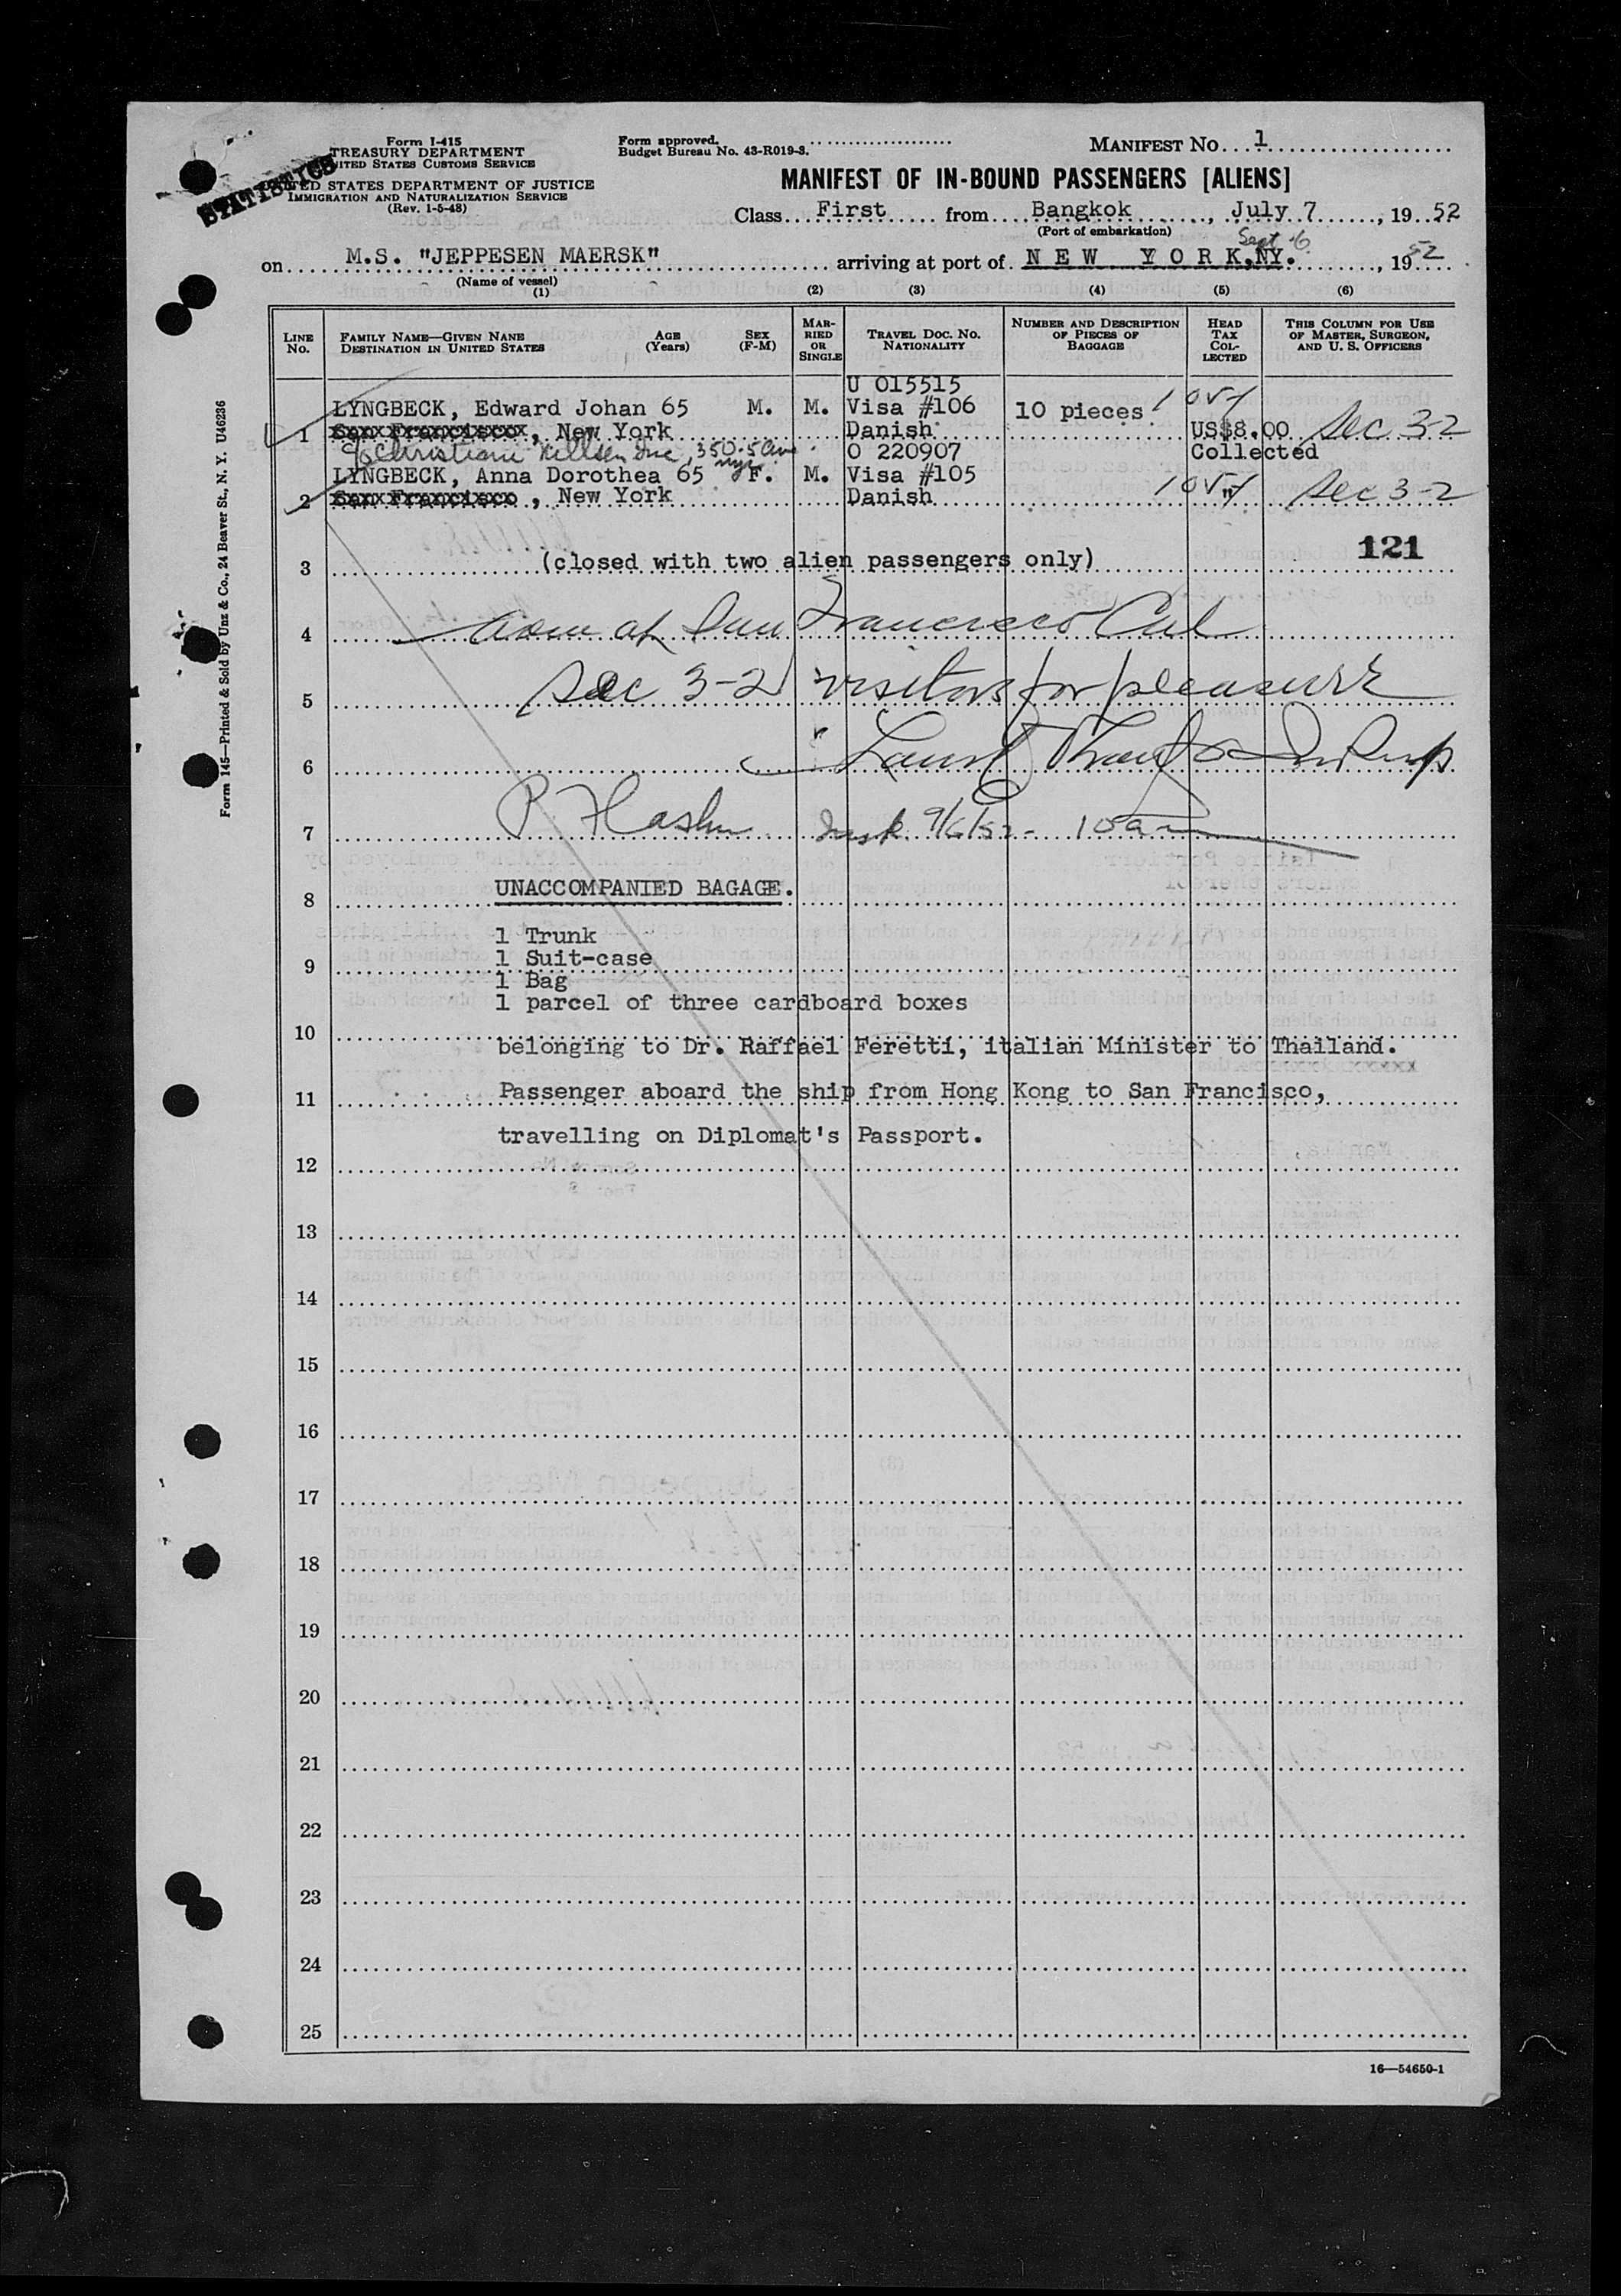 Form I-415
TREASURY DEPARTMENT
UNITED STATES CUSTOMS SERVICE
UNITED STATES DEPARTMENT OF JUSTICE
IMMIGRATION AND NATURALIZATION SERVICE
(Rev. 1-5-48)
STATISTICS
Form approved.
Budget Bureau No. 43-R019-3.
MANIFEST No. 1
MANIFEST OF IN-BOUND PASSENGERS [ALIENS]
Class First from Bangkok, July 7, 1952
(Port of embarkation)
Sept 6
on M.S. "JEPPESEN MAERSK" arriving at port of NEW YORK, NY., 1952
(Name of vessel)
(1) (2) (3) (4) (5) (6)
LINE No.
FAMILY NAME—GIVEN NAME
DESTINATION IN UNITED STATES
AGE (Years)
SEX (F-M)
MARRIED OR SINGLE
TRAVEL DOC. NO.
NATIONALITY
NUMBER AND DESCRIPTION OF PIECES OF BAGGAGE
HEAD TAX COLLECTED
THIS COLUMN FOR USE OF MASTER, SURGEON, AND U. S. OFFICERS
U 015515
LYNGBECK, Edward Johan 65 M. M. Visa #106 10 pieces
1 San Francisco, New York Danish US$8.00 Sec 3-2
c/o Christiani Nillsen Inc, 350-5 Ave nyc O 220907 Collected
LYNGBECK, Anna Dorothea 65 F. M. Visa #105
2 San Francisco, New York Danish " Sec 3-2
121
3 (closed with two alien passengers only)
4 adm at San Francisco Cal
5 Sec 3-2 visitors for pleasure
6
7 Insp. 9/6/52 - 10am
8 UNACCOMPANIED BAGAGE.
1 Trunk
9 1 Suit-case
1 Bag
1 parcel of three cardboard boxes
10
belonging to Dr. Raffael Feretti, italian Minister to Thailand.
11 Passenger aboard the ship from Hong Kong to San Francisco,
travelling on Diplomat's Passport.
12
13
14
15
16
17
18
19
20
21
22
23
24
25
16—54650-1
Form 145—Printed & Sold by Unz & Co., 24 Beaver St., N. Y. U46236